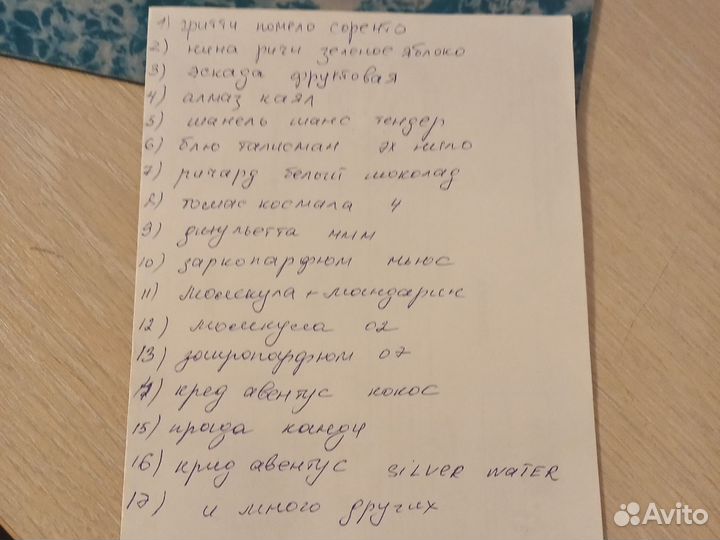 1) гритти помело соренто
2) нина ричи зеленое яблоко
3) эскада фруктовая
4) алмаз каял
5) шанель шанс тендер
6) блю талисман эх нило
7) ричард белый шоколад
8) томас космала 4
9) джульетта ммм
10) заркопарфюм мьюс
11) молекула + мандарин
12) молекула 02
13) заркопарфюм 07
14) кред авентус кокос
15) прада канди
16) крид авентус SILVER WATER
17) и много других
Avito